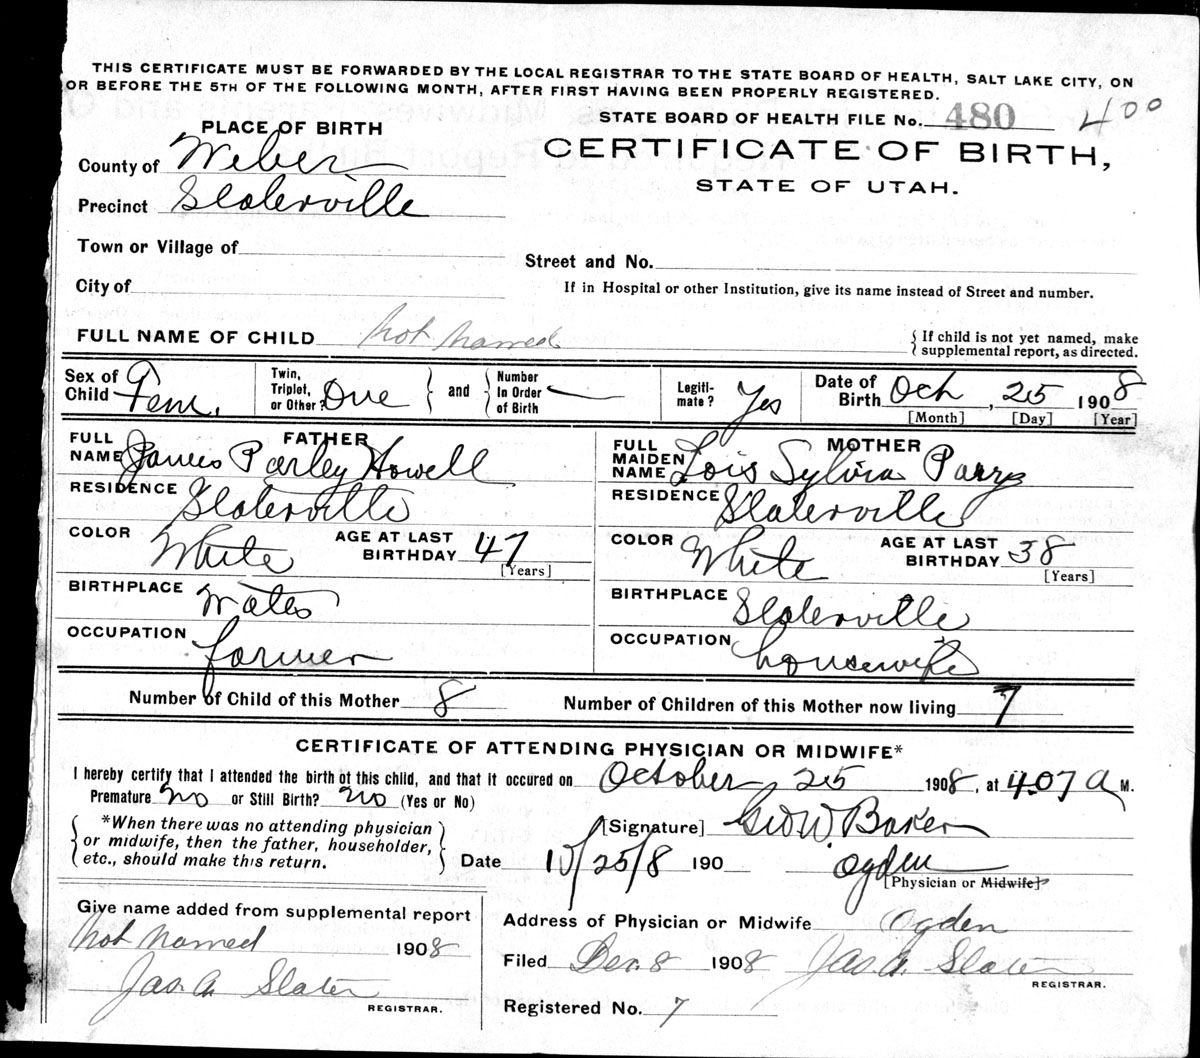 THIS CERTIFICATE MUST BE FORWARDED BY THE LOCAL REGISTRAR TO THE STATE BOARD OF HEALTH, SALT LAKE CITY, ON
OR BEFORE THE 5TH OF THE FOLLOWING MONTH, AFTER FIRST HAVING BEEN PROPERLY REGISTERED.
STATE BOARD OF HEALTH FILE No. 480 400
PLACE OF BIRTH
CERTIFICATE OF BIRTH,
STATE OF UTAH.
County of Weber
Precinct Slaterville
Town or Village of
Street and No.
City of
If in Hospital or other Institution, give its name instead of Street and number.
FULL NAME OF CHILD Not Named
{ If child is not yet named, make
supplemental report, as directed.
Sex of Child Fem.
Twin, Triplet, or Other? One } and { Number In Order of Birth —
Legiti-mate? Yes
Date of Birth Oct, 25 1908
[Month] [Day] [Year]
FATHER
FULL NAME James Parley Howell
RESIDENCE Slaterville
COLOR White AGE AT LAST BIRTHDAY 47
[Years]
BIRTHPLACE Wales
OCCUPATION farmer
MOTHER
FULL MAIDEN NAME Lois Sylvia Parry
RESIDENCE Slaterville
COLOR White AGE AT LAST BIRTHDAY 38
[Years]
BIRTHPLACE Slaterville
OCCUPATION housewife
Number of Child of this Mother 8 Number of Children of this Mother now living 7
CERTIFICATE OF ATTENDING PHYSICIAN OR MIDWIFE*
I hereby certify that I attended the birth of this child, and that it occured on October 25 1908, at 4.07 A M.
Premature No or Still Birth? No (Yes or No)
{ *When there was no attending physician
or midwife, then the father, householder,
etc., should make this return. }
[Signature] Geo W. Baker
Date 10/25/8 190 Ogden
[Physician or Midwife]
Give name added from supplemental report
Not Named 1908
Jas. A. Slater
REGISTRAR.
Address of Physician or Midwife Ogden
Filed Dec. 8 1908 Jas. A. Slater
REGISTRAR.
Registered No. 7